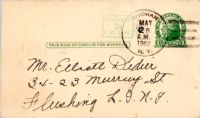 MAY
A.M.
1952
N.Y.
THIS SIDE OF CARD IS FOR ADDRESS
Mr. Elliott Rider
34-23 Murray St
Flushing L.I. N.Y.